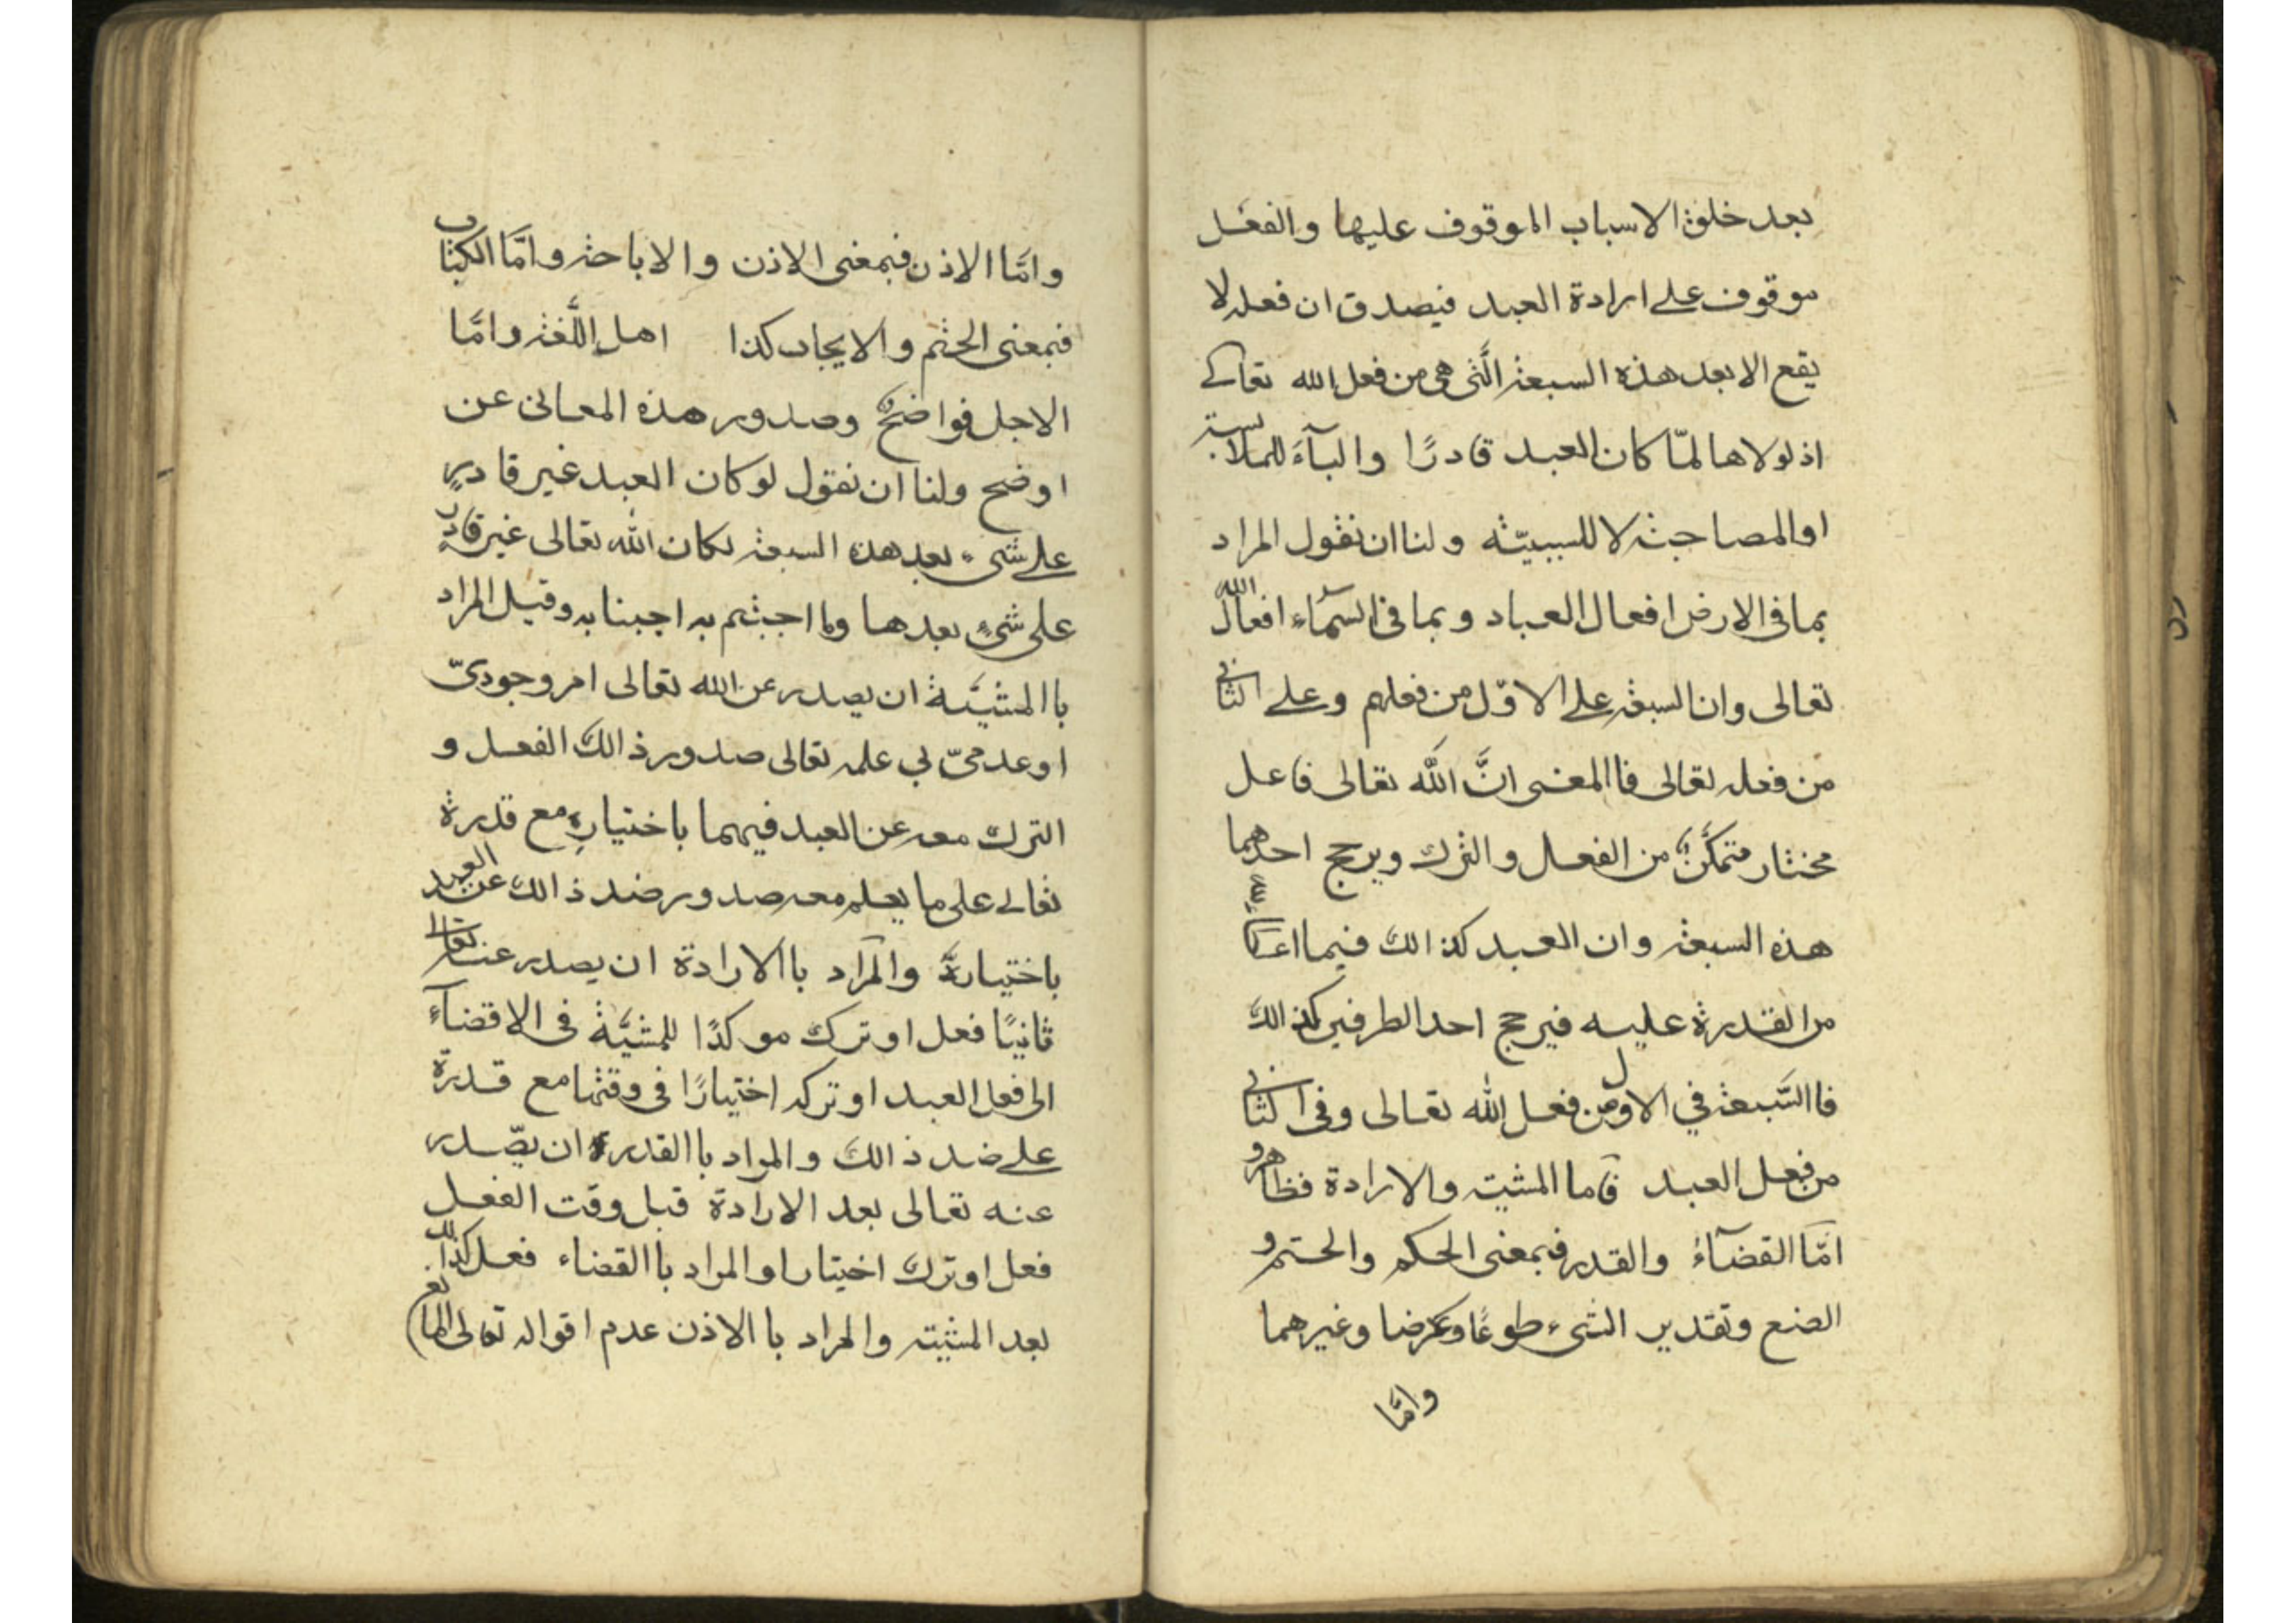 بعد خلق الاسباب الموقوف عليها والفعل
موقوف على ارادة العبد فيصدق ان فعله لا
يقع الا بعد هذه السبعة الّتى هى من فعل الله تعالى
اذ لولاها لمّا كان العبد قادرًا والبآء للملابسة
او المصاحبة لا للسببيّة ولنا ان نقول المراد
بما فى الارض افعال العباد وبما فى السمآء افعال الله
تعالى وان السبعة على الاوّل من فعلهم وعلى الثانى
من فعله تعالى فاالمعنى انَّ اللّٰه تعالى فاعل
مختار متمكّن من الفعل والترك ويرجح احدهما
هذه السبعة وان العبد كذالك فيما اعطاه الله
من القدرة عليه فيرجح احد الطرفين كذالك
فاالسّبعة في الاول من فعل الله تعالى وفى الثانى
من فعل العبد فاما المشية والارادة فظاهر و
امّا القضآء والقدر فبمعنى الحكم والحتم و
الصنع وتقدير الشىء طوعًا وكرها وغيرهما
وامّا
وامّا الاذن فبمعنى الاذن والاباحة وامّا الكتاب
فبمعنى الحتم والايجاب كذا اهل اللّغة وامّا
الاجل فواضحٌ وصدور هذه المعانى عن
اوضح ولنا ان نقول لو كان العبد غير قادرٍ
على شىء بعد هذه السبعة لكان اللّٰه تعالى غير قادرٍ
على شىءٍ بعدها وما اجبتم به اجبنا به وقيل المراد
باالمشيَّة ان يصدر عن الله تعالى امر وجودىّ
او عدمىّ في علمه تعالى صدور ذالك الفعل و
الترك معه عن العبد فيهما باختياره مع قدرة
تعالى على ما يعلم معه صدور ضد ذالك عن العبد
باختياره والمراد باالارادة ان يصدر عنه تعالى
ثانيًا فعل او ترك موكدًا للمشيَّة فى الاقضآء
الى فعل العبد او تركه اختيارًا فى وقتها مع قدرة
على ضد ذالك والمراد باالقدرة ان يصّدر
عنه تعالى بعد الارادة قبل وقت الفعل
فعل او ترك اختيارا والمراد باالقضاء فعل كذالك
بعد المشية والمراد باالاذن عدم اقواله تعالى المانع